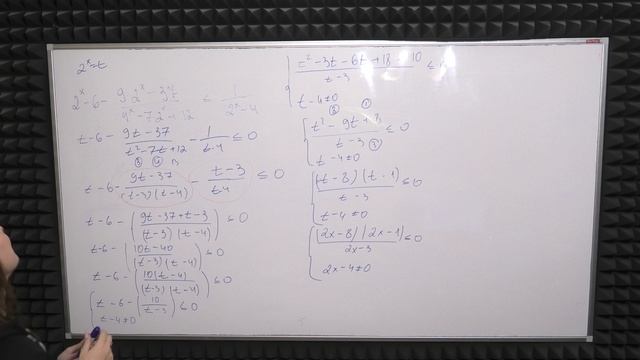 2^x = t
2^x - 6 - (9·2^x - 37)/(4^x - 7·2^x + 12) ≤ 1/(2^x - 4)
t - 6 - (9t - 37)/(t² - 7t + 12) - 1/(t - 4) ≤ 0
t - 6 - (9t - 37)/((t - 3)(t - 4)) - (t - 3)/(t - 4) ≤ 0
t - 6 - ((9t - 37 + t - 3)/((t - 3)(t - 4))) ≤ 0
t - 6 - ((10t - 40)/((t - 3)(t - 4))) ≤ 0
t - 6 - (10(t - 4)/((t - 3)(t - 4))) ≤ 0
t - 6 - (10/(t - 3)) ≤ 0
t - 4 ≠ 0
(t² - 3t - 6t + 18 - 10)/(t - 3) ≤ 0
t - 4 ≠ 0
(t² - 9t + 8)/(t - 3) ≤ 0
t - 4 ≠ 0
(t - 8)(t - 1)/(t - 3) ≤ 0
t - 4 ≠ 0
(2x - 8)(2x - 1)/(2x - 3) ≤ 0
2x - 4 ≠ 0